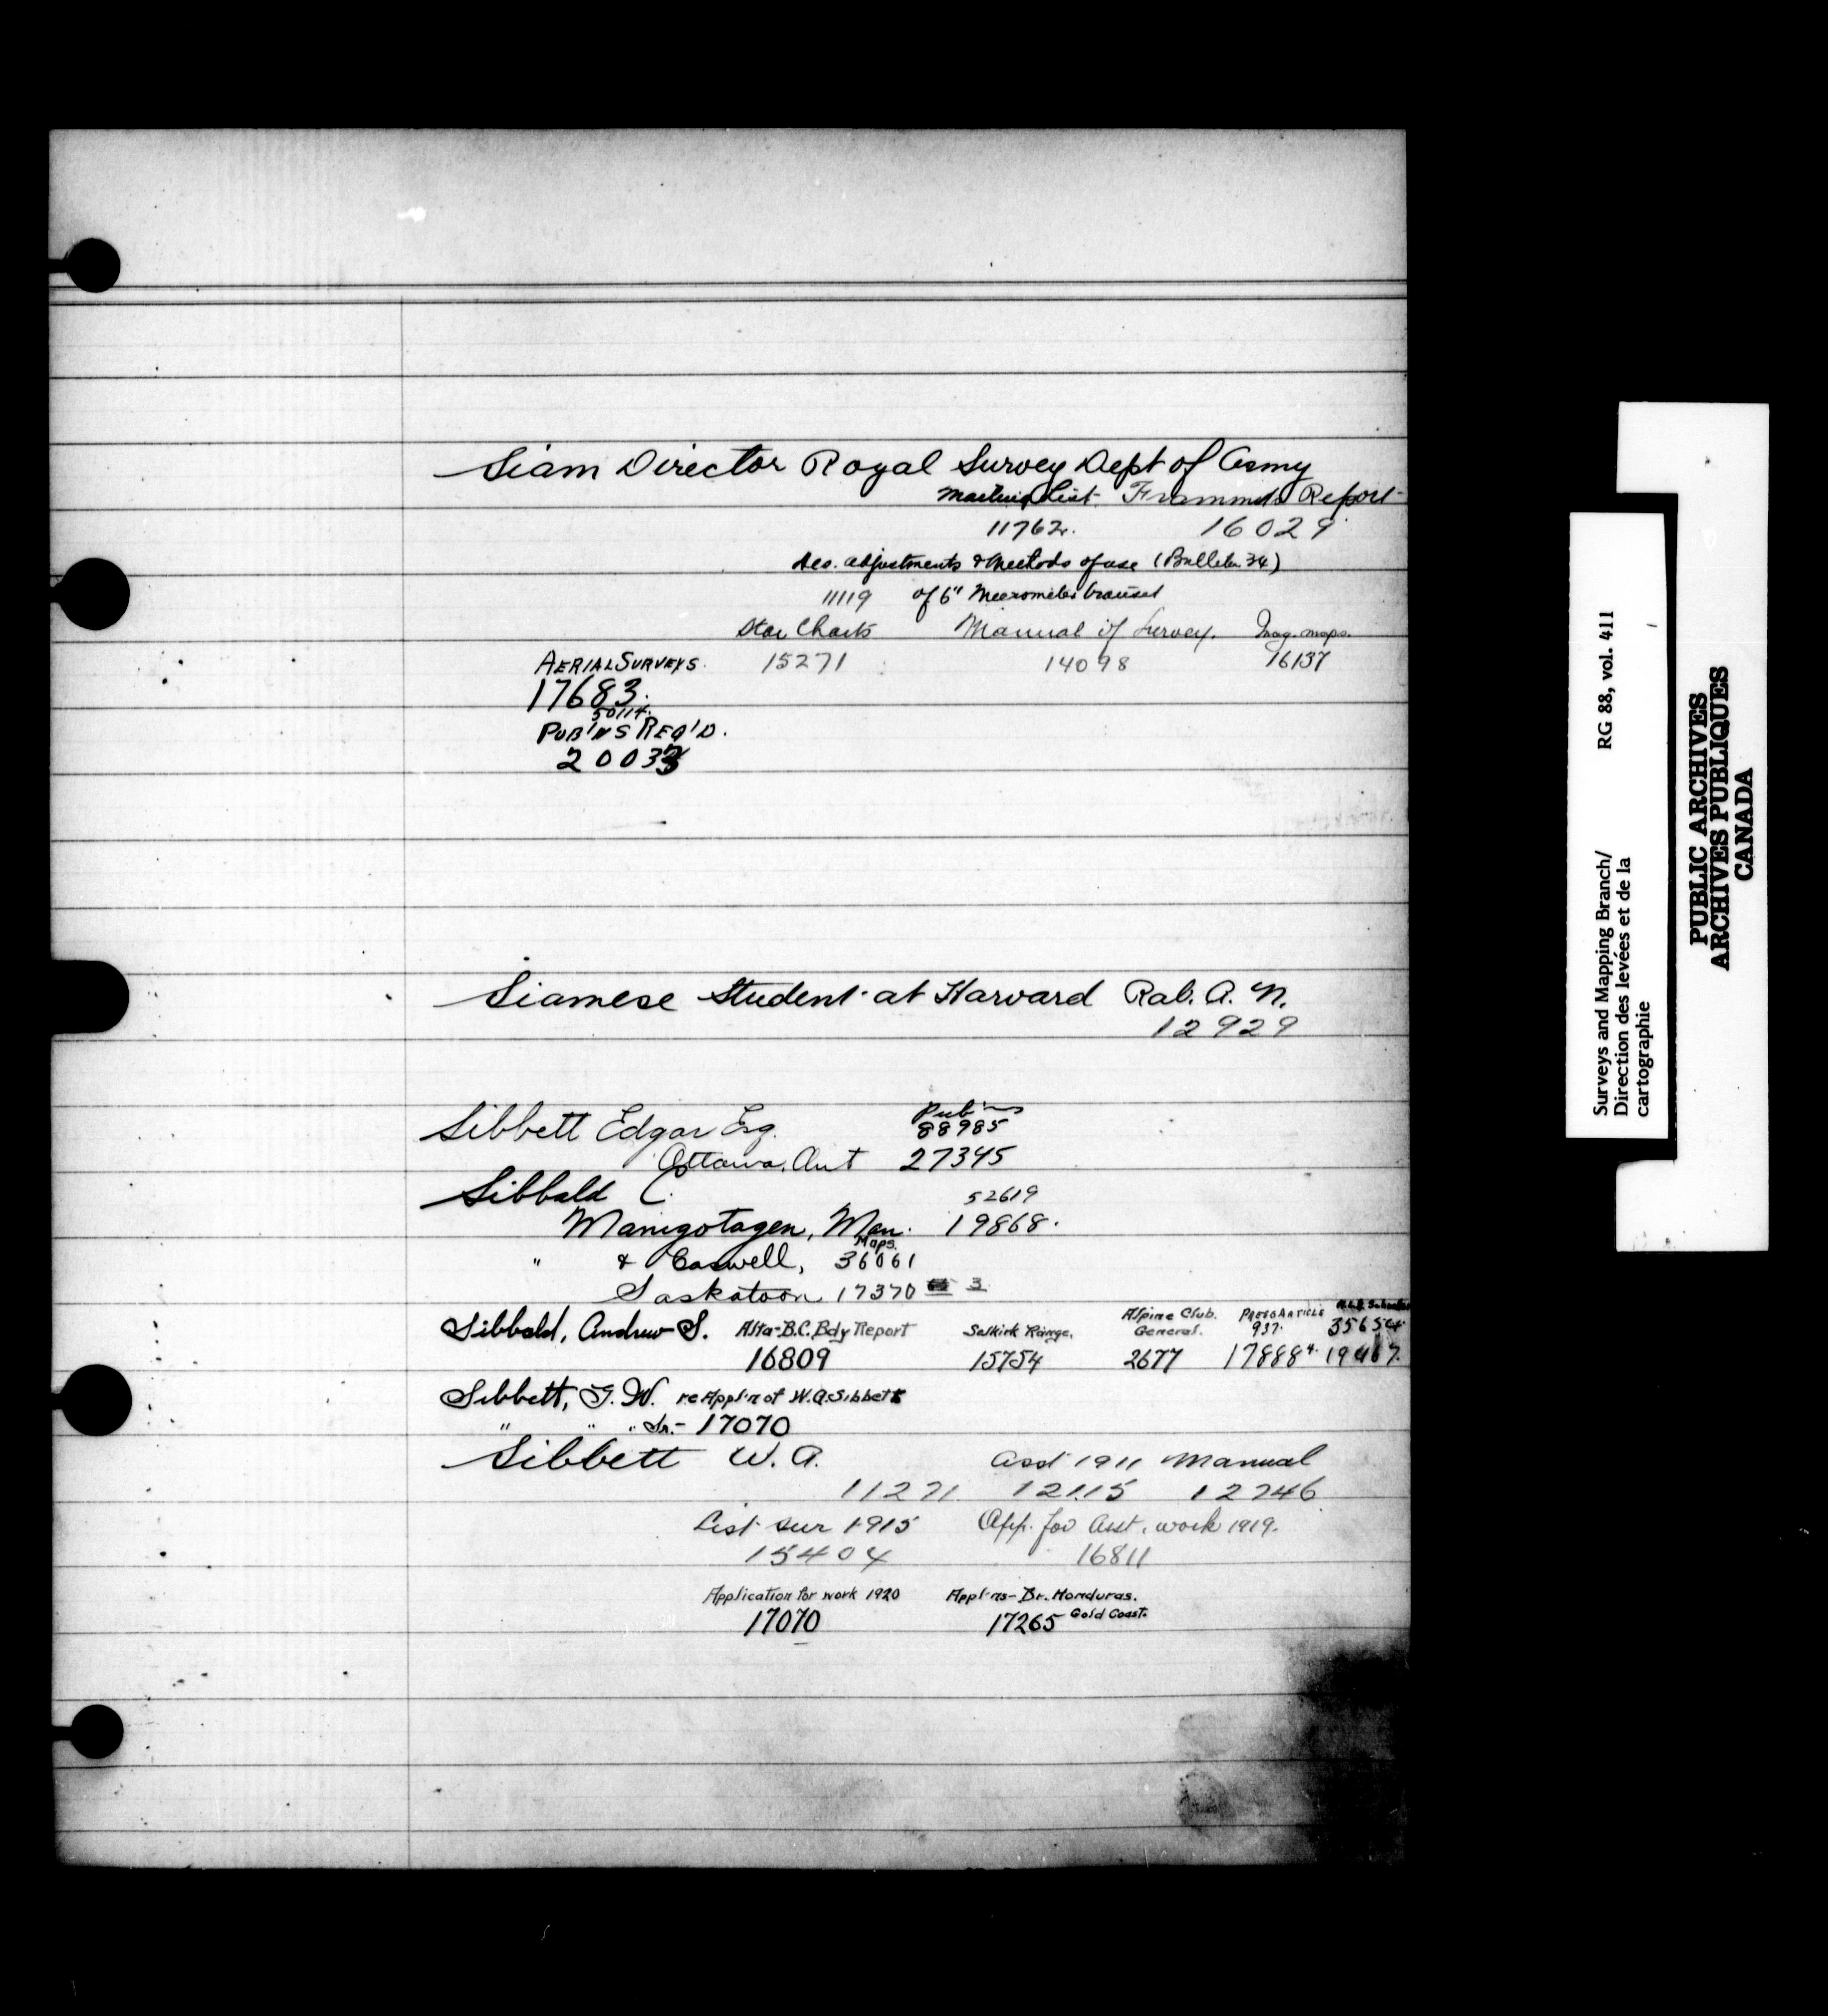 Siam Director Royal Survey Dept of Army
Mailing List Report
11762. 16029
Des. adjustments & Methods of use (Bulletin 34)
11119 of 6" Micrometer transit
Star Charts Manual of Survey. Mag. maps.
AERIAL SURVEYS. 15271 14098 16137
17683.
50114.
PUB'NS REQ'D.
20033
Siamese Student at Harvard Rab. A. N.
12929
Pub'ns
Sibbett Edgar Esq. 88985
Ottawa, Ont 27345
Sibbald C. 52619
Manigotagen, Man. 19868.
Maps.
" & Caswell, 36061
Saskatoon 17370 3
Sibbald, Andrew S. Alta-B.C. Bdy Report Selkirk Range. Alpine Club. General. PRESS ARTICLE 937. 35654
16809 15754 2677 17888 19467.
Sibbett, G. W. re Appl'n of W. A. Sibbett
" " " Sr.- 17070
Sibbett W. A. Asst 1911 Manual
11271 12115 12746
List sur 1915 App. for Asst. work 1919.
15404 16811
Application for work 1920 Appl'ns-Br. Honduras.
17070 17265 Gold Coast.
Surveys and Mapping Branch/ RG 88, vol. 411
Direction des levées et de la
cartographie
PUBLIC ARCHIVES
ARCHIVES PUBLIQUES
CANADA